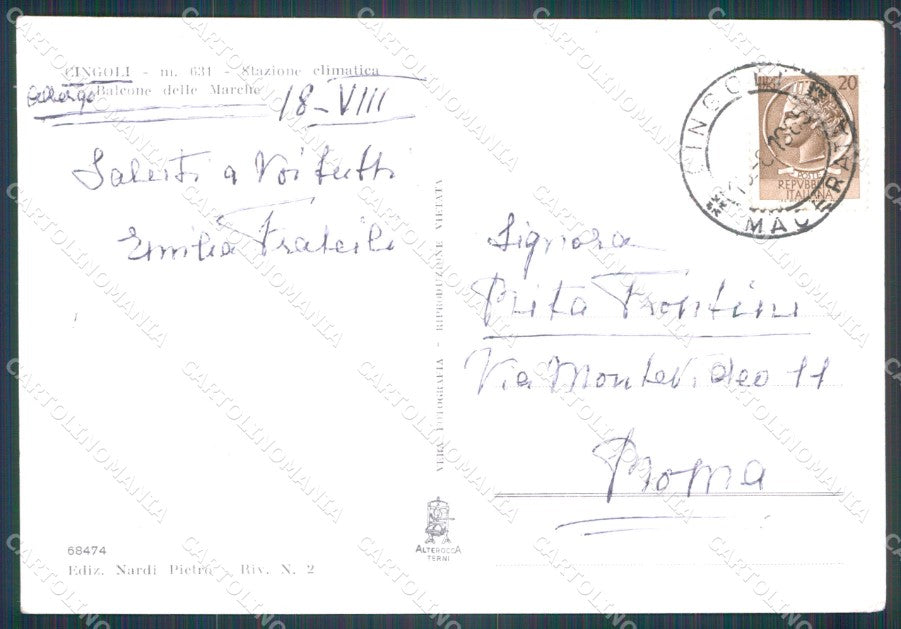 CINGOLI - m. 631 - Stazione climatica
Balcone delle Marche
18-VIII
Saluti a Voi tutti
Emilia
Signora
Rita Frontini
Via Montevideo 11
Roma
VERA FOTOGRAFIA - RIPRODUZIONE VIETATA
CINGOLI
MACERATA
20
POSTE
REPVBBLICA
ITALIANA
68474
Ediz. Nardi Pietro - Riv. N. 2
ALTEROCCA
TERNI
CARTOLINOMANIA